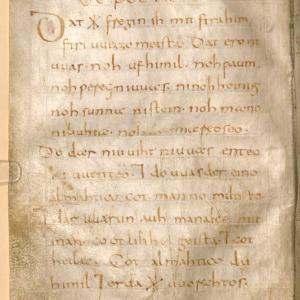 De poeta
Dat * fregin ih mit firahim
firi uuizzo meista. Dat ero ni
uuas. noh ufhimil. noh paum
noh pereg ni uuas. ninohheinig
noh sunna nistein. noh mano
niliuhta. noh der mareoseo.
Do dar niuuiht niuuas enteo
ni uuenteo. 7 do uuas der eino
almahtico cot manno milti
sto. 7 dar uuarun auh manake mit
inan. cootlihhe geista. 7 cot
heilac. Cot almahtico du
himil 7 erda * uuorahtos.